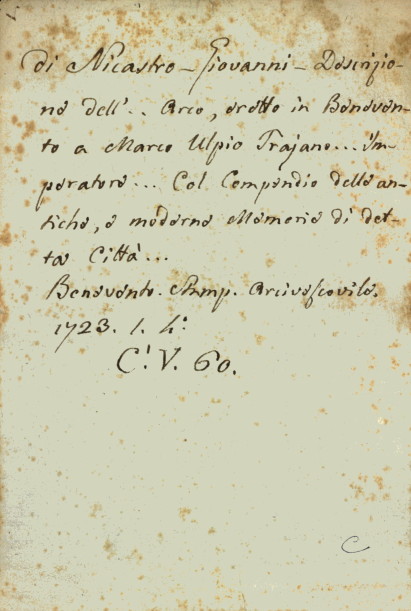 di Nicastro - Giovanni - Descrizio-
ne dell'.. Arco, eretto in Beneven-
to a Marco Ulpio Trajano... Im-
peratore... Col Compendio delle an-
tiche, e moderne Memorie di det-
ta Città...
Benevento. Stamp. Arcivescovile.
1723. 1. 4:
C. V. 60.
C